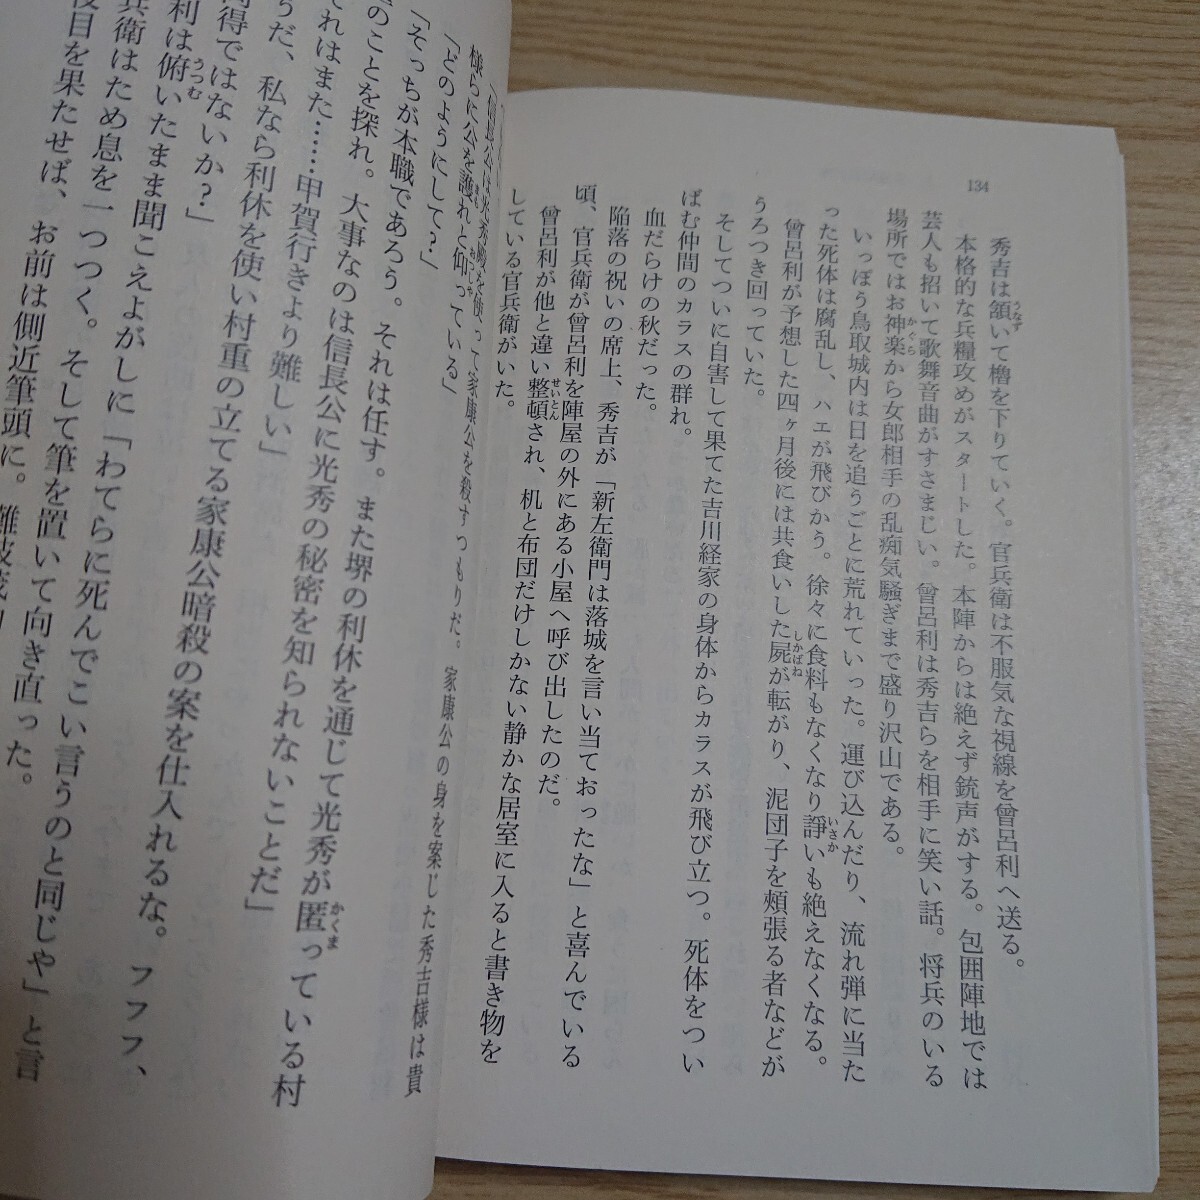 134
秀吉は頷いて櫓を下りていく。官兵衛は不服気な視線を曾呂利へ送る。
本格的な兵糧攻めがスタートした。本陣からは絶えず銃声がする。包囲陣地では
芸人も招いて歌舞音曲がすさまじい。曾呂利は秀吉らを相手に笑い話。将兵のいる
場所ではお神楽から女郎相手の乱痴気騒ぎまで盛り沢山である。
いっぽう鳥取城内は日を追うごとに荒れていった。運び込んだり、流れ弾に当た
った死体は腐乱し、ハエが飛びかう。徐々に食料もなくなり諍いも絶えなくなる。
曾呂利が予想した四ヶ月後には共食いした屍が転がり、泥団子を頰張る者などが
うろつき回っていた。
そしてついに自害して果てた吉川経家の身体からカラスが飛び立つ。死体をつい
ばむ仲間のカラスの群れ。
血だらけの秋だった。
陥落の祝いの席上、秀吉が「新左衛門は落城を言い当ておったな」と喜んでいる
頃、官兵衛が曾呂利を陣屋の外にある小屋へ呼び出したのだ。
曾呂利が他と違い整頓され、机と布団だけしかない静かな居室に入ると書き物を
している官兵衛がいた。
「信長公は光秀殿を使って家康公を殺すつもりだ。家康公の身を案じた秀吉様は貴
様らに公を護れと仰っている」
「どのようにして？」
「そっちが本職であろう。それは任す。また堺の利休を通じて光秀が匿っている村
のことを探れ。大事なのは信長公に光秀の秘密を知られないことだ」
れはまた……甲賀行きより難しい」
うだ、私なら利休を使い村重の立てる家康公暗殺の案を仕入れるな。フフフ、
得ではないか？」
利は俯いたまま聞こえよがしに「わてらに死んでこい言うのと同じや」と言
兵衛はため息を一つつく。そして筆を置いて向き直った。
目を果たせば、お前は側近筆頭に。